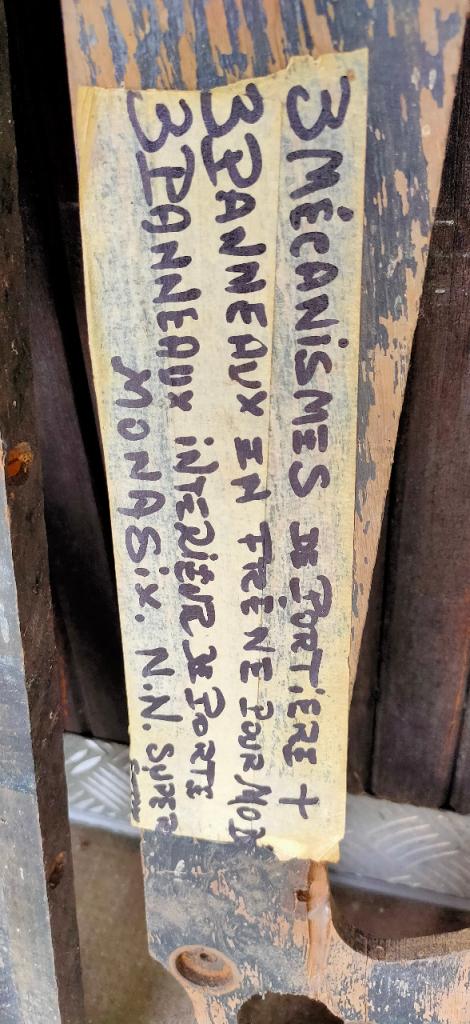 3 MÉCANISMES DE PORTIERE +
3 PANNEAUX EN FRÊNE POUR MOD
3 PANNEAUX INTERIEUR DE PORTE
MONASIX. N.N. SUPER